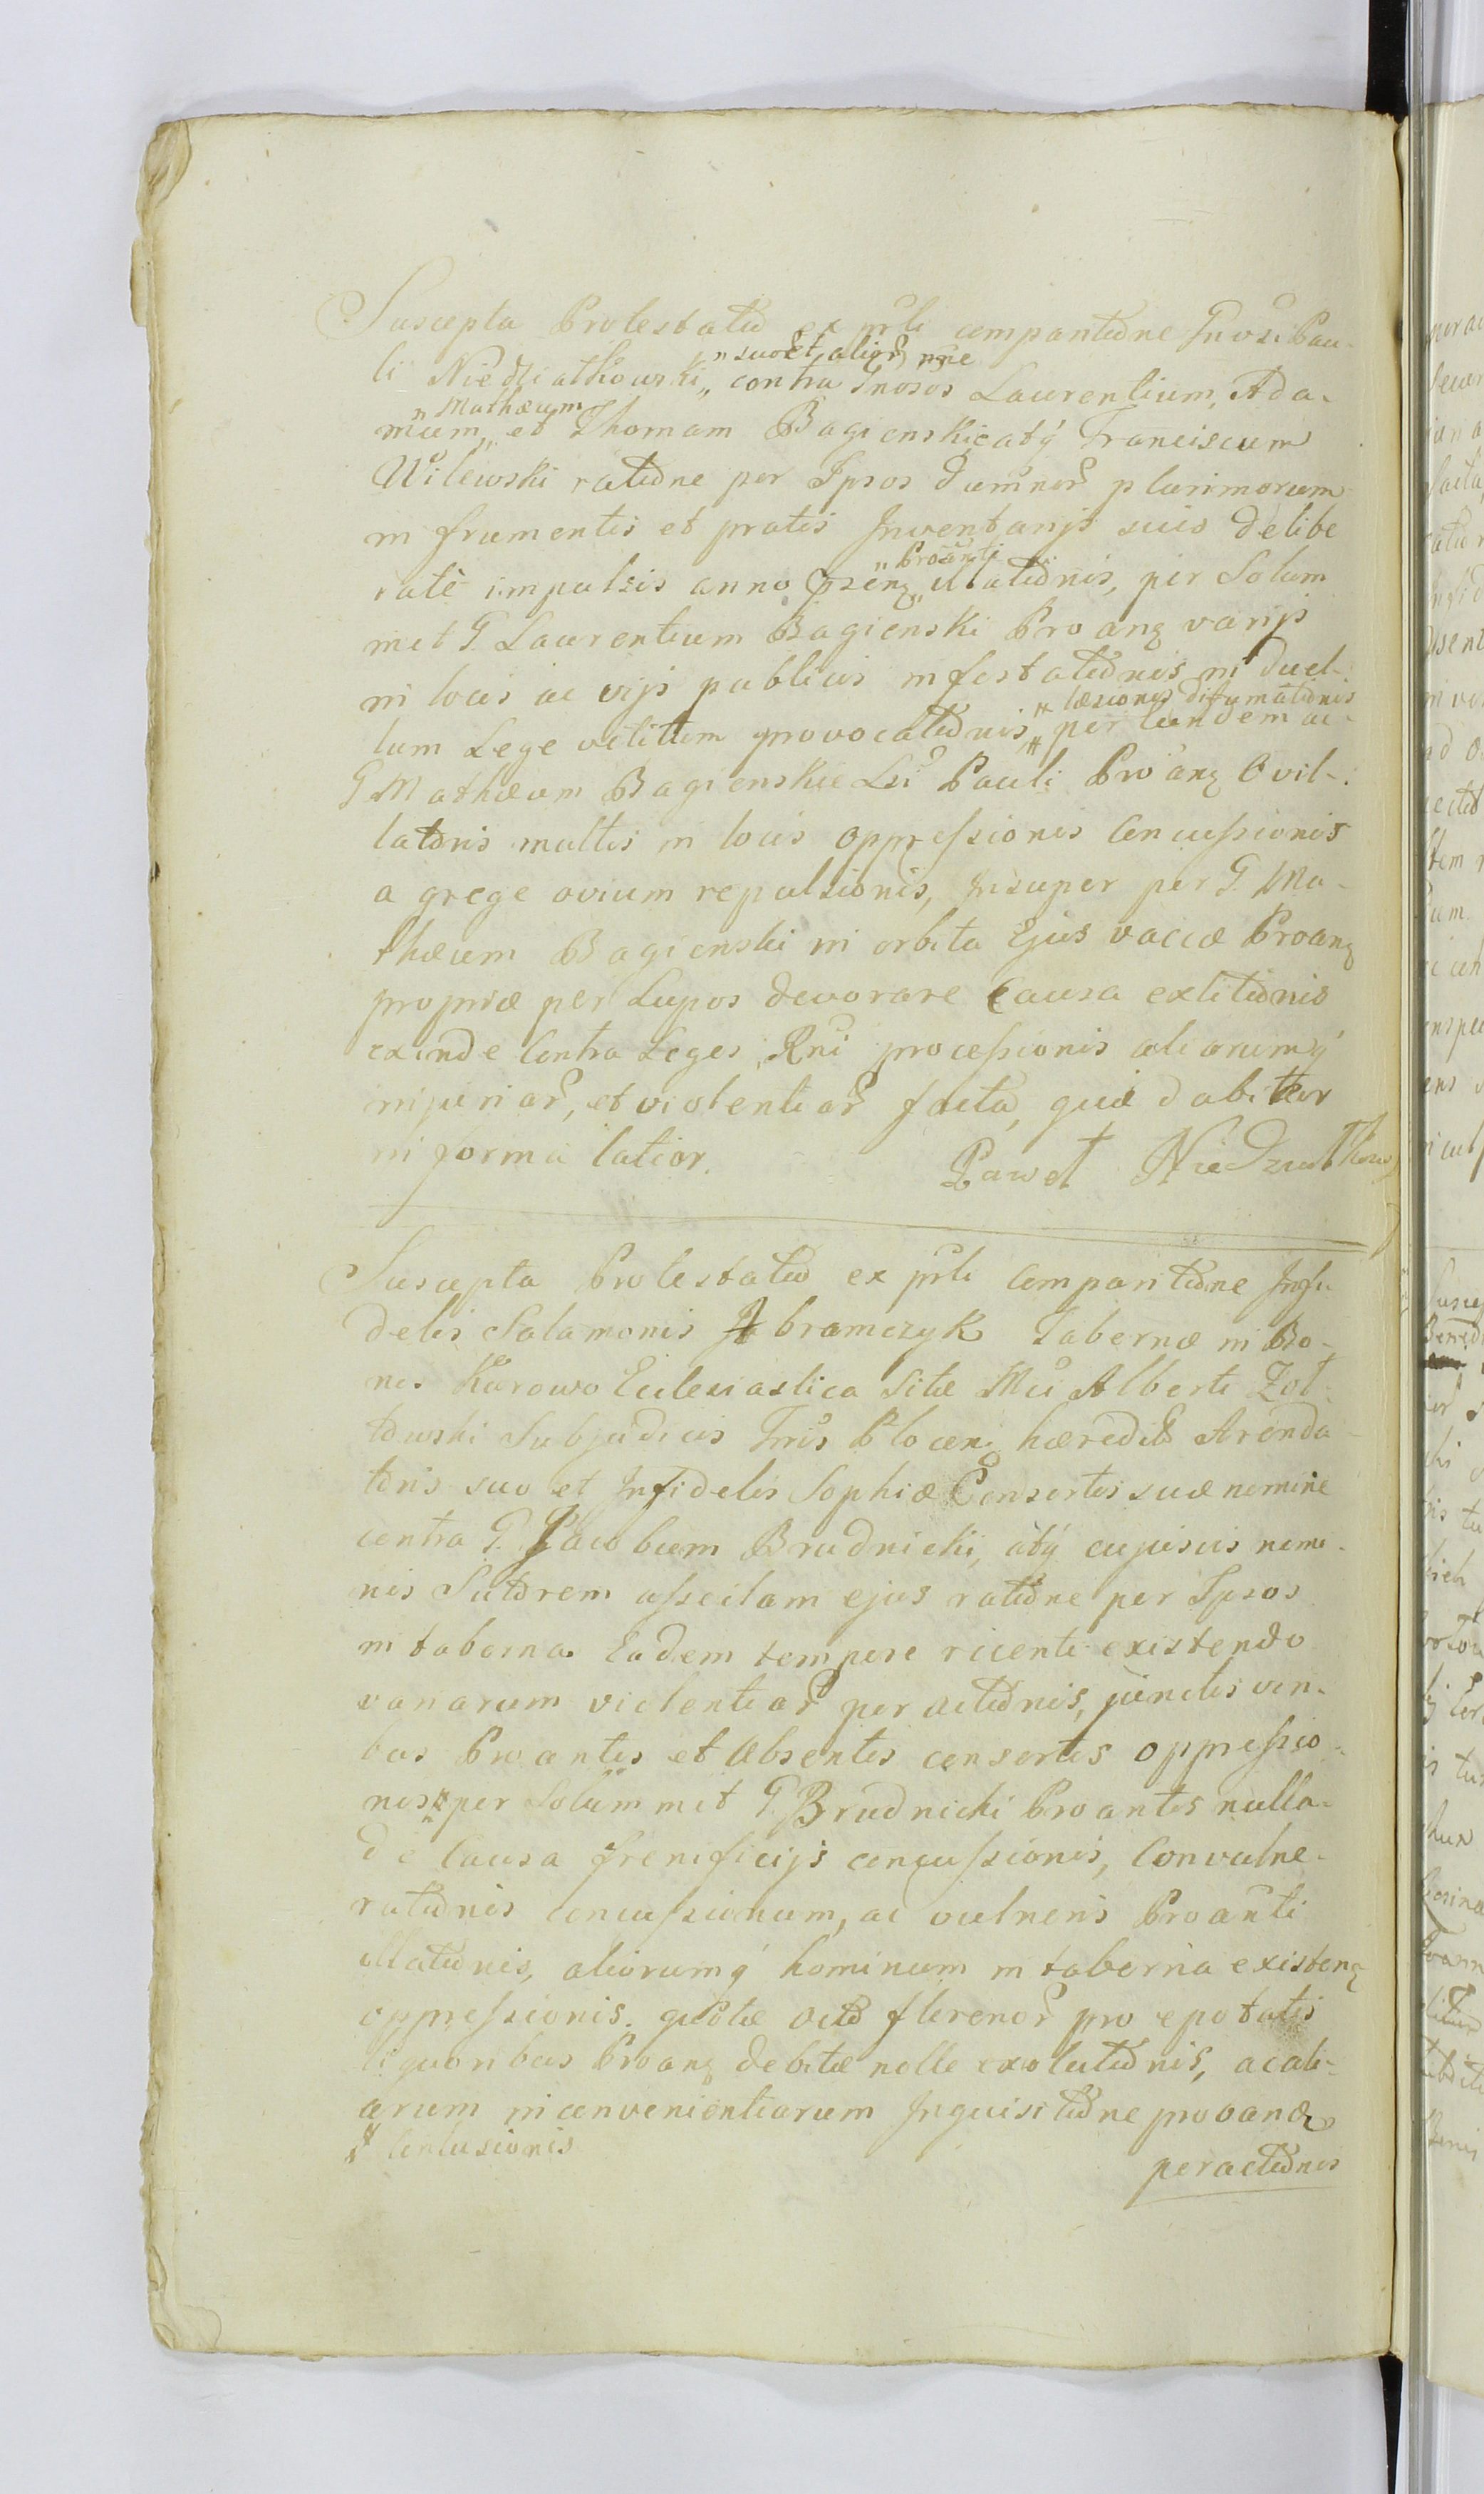 Suscepta Protestatio ex prli comparitione Gnosi Pau-
li Niedziatkowski „suo et alior nne„ contra Gnosos Laurentium, Ada-
mum, „Mathæum„ et Thomam Bagienskie atq Franciscum
Wilewski ratione per Ipsos damnor plurimorum
in frumentis et pratis Inventarijs suis delibe
ratè impulsis anno psenq „Proanti„ illationis, per Solum
met G. Laurentium Bagienski Proanq varijs
in locis ac vijs publicis infestationis in duel-
lum Lege vetitum provocationis, # læsionis difamationis # per eundem ac
G Mathæum Bagienskie Lsi Pauli Proanq Ovil-
latoris multis in locis oppressionis Concussionis
a grege ovium repulsionis, Insuper per G. Ma-
thæum Bagienski in orbita Ejus vaccæ Proanq
propriæ per Lupos devorare Causa extitionis
exinde Contra Leges, Rni processionis aliarumq
injuriar, et violentiar facta, quæ dabitur
in forma latior. Paweł Niedziatkows
Suscepta Protestatio ex prli Comparitione Infi
delis Salamonis Abramczyk Tabernæ in Bo-
nis Karowo Ecclesiastica Sitæ Mci Alberti Zoł-
towski Subjudicis Tris Plocen hæredit Arenda
toris suo et Infidelis Sophiæ Consortis suæ nomine
contra G. Jacobum Brudnicki, atq cujuscis nomi-
nis Sutorem assectam ejus ratione per Ipsos
in taberna Eadem tempore recenti existendo
variarum violentiar peractionis, junctis viri-
bus Proantis et Absentis consortis oppressio-
nis # per Solum met G. Brudnicki Proantis nulla
dè Causa frenificijs concussionis, Convulne-
rationis concussionum, ac vulneris Proanti
illationis, aliorumq hominum in taberna existenq
oppressionis. quotæ octo florenor pro epotatis
liquoribus Proanq debitæ nolle exolutionis, ac ali-
arum inconvenientiarum Inquisitione provandæ
# Contusionis
peractionis